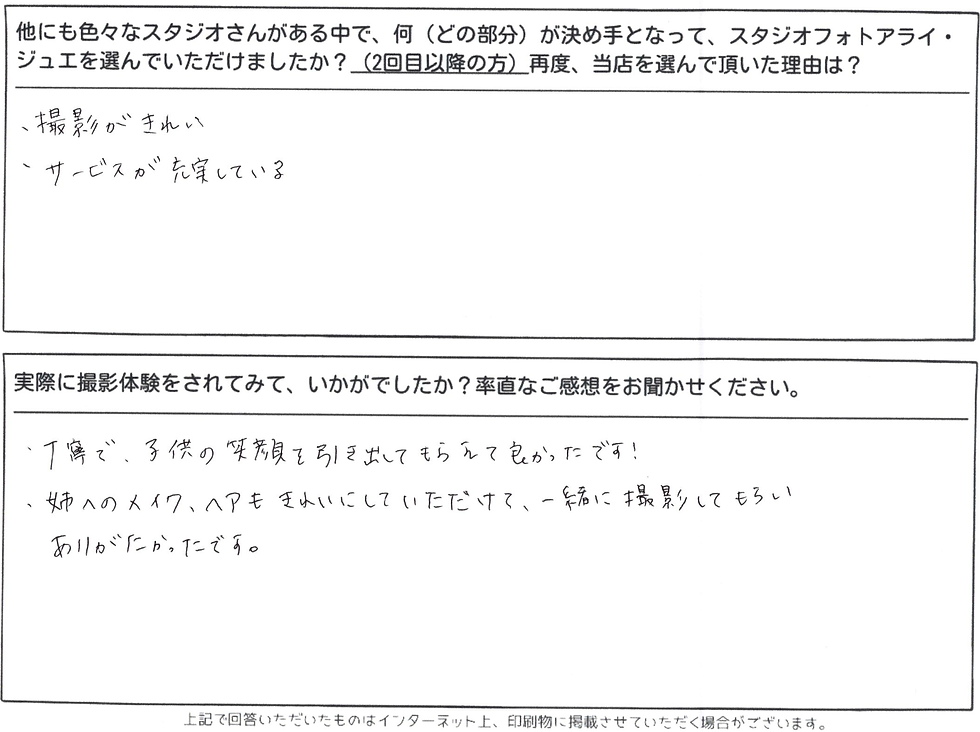 他にも色々なスタジオさんがある中で、何（どの部分）が決め手となって、スタジオフォトアライ・
ジュエを選んでいただけましたか？（2回目以降の方）再度、当店を選んで頂いた理由は？
、撮影がきれい
、サービスが充実している
実際に撮影体験をされてみて、いかがでしたか？率直なご感想をお聞かせください。
・丁寧で、子供の笑顔を引き出してもらえて良かったです！
・姉へのメイク、ヘアもきれいにしていただけて、一緒に撮影してもらい
ありがたかったです。
上記で回答いただいたものはインターネット上、印刷物に掲載させていただく場合がございます。